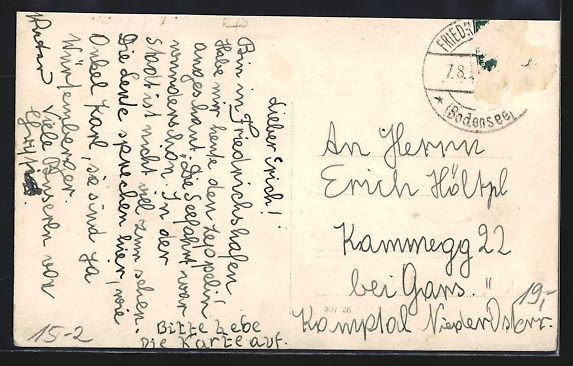 Lieber Erich!
Bin in Friedrichshafen.
Habe mir heute den Zeppelin
angeschaut. Die Seefahrt war
wunderschön. In der
Stadt ist nicht viel zum sehen.
Die Leute sprechen hier, wie
Onkel Karl, sie sind ja
Württemberger.
Viele Busseren von
Bitte hebe
Die Karte auf.
15-2
FRIEDR
7.8.
(Bodensee)
An Herrn
Erich Höltzl
Kammegg 22
bei Gars "
19,-
Kamptal Nieder Österr.
907 26